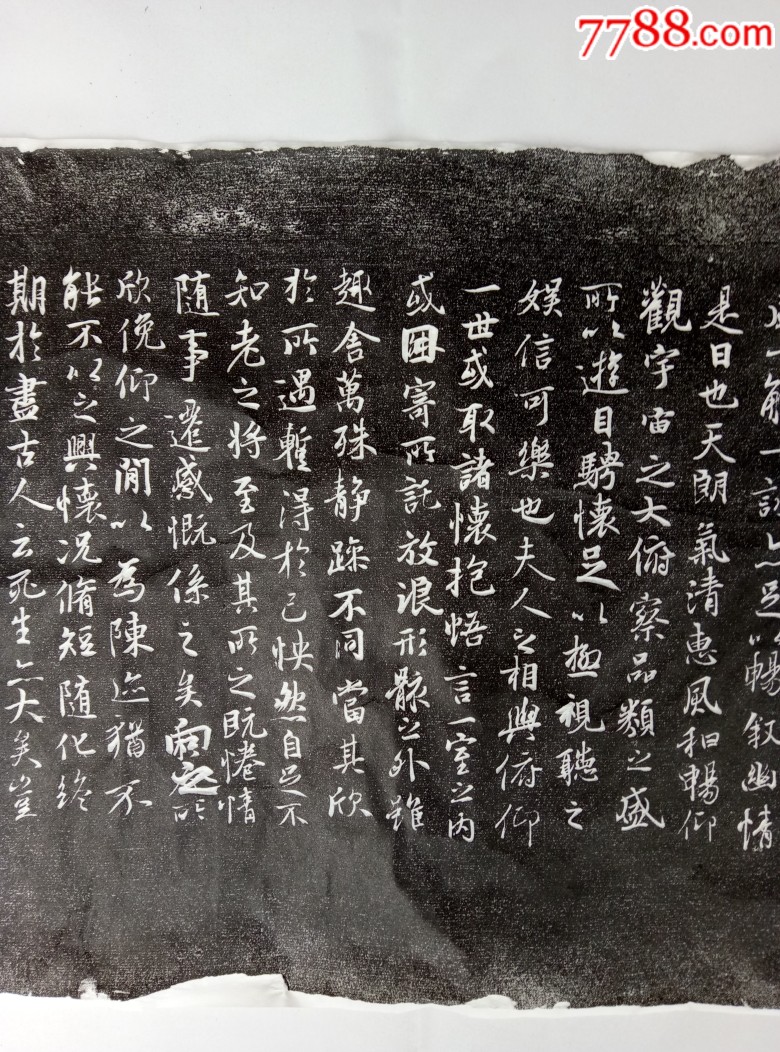 7788.com
一觴一詠亦足以暢叙幽情
是日也天朗氣清惠風和暢仰
觀宇宙之大俯察品類之盛
所以遊目騁懷足以極視聽之
娛信可樂也夫人之相與俯仰
一世或取諸懷抱悟言一室之内
或因寄所託放浪形骸之外雖
趣舍萬殊静躁不同當其欣
於所遇蹔得於己怏然自足不
知老之將至及其所之既惓情
隨事遷感慨係之矣向之所
欣俛仰之閒以為陳迹猶不
能不以之興懷況脩短隨化終
期於盡古人云死生亦大矣豈